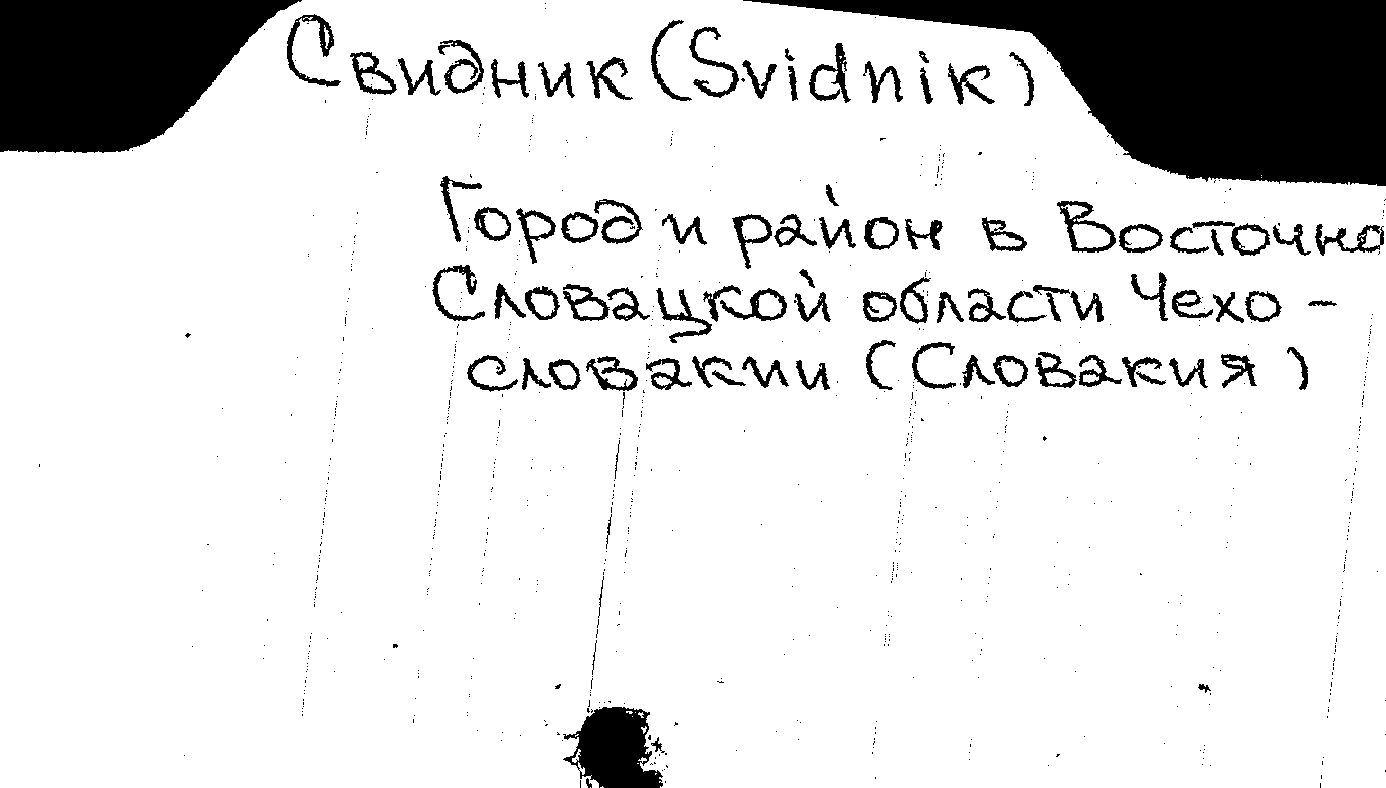 Свидник (Svidnik)
Город и район в Восточно
Словацкой области Чехо-
словакии (Словакия)